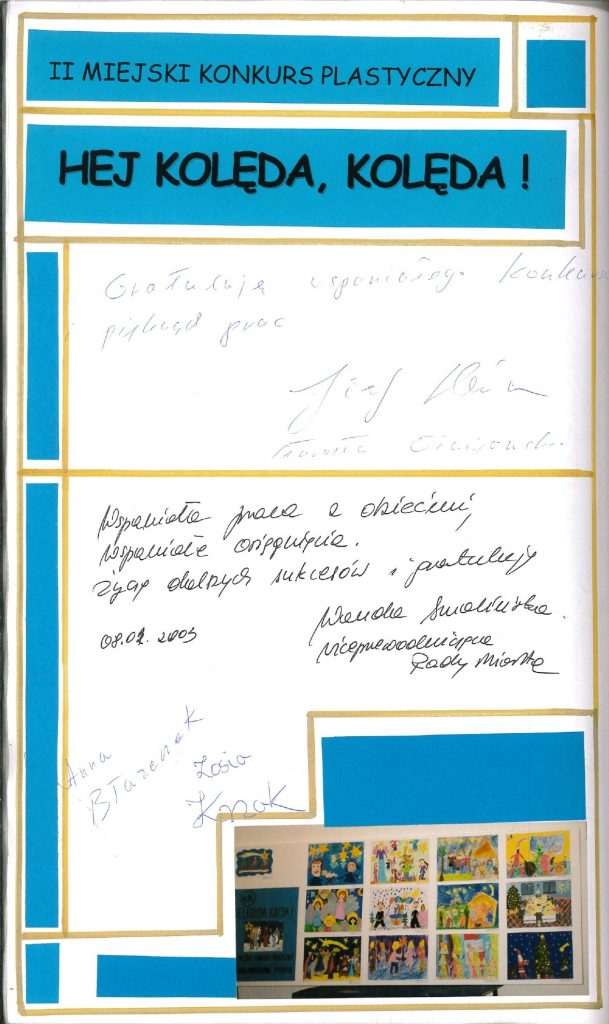 II MIEJSKI KONKURS PLASTYCZNY
HEJ KOLĘDA, KOLĘDA !
Gratuluję wspaniałego konkursu
i pięknych prac
Wspaniała praca z dziećmi,
Wspaniałe osiągnięcia.
Życzę dalszych sukcesów i gratuluję
08.01.2003
Wanda Smolińska
wiceprzewodnicząca
Rady Miasta
Anna
Błazenek
Zosia
Kozak
HEJ KOLĘDA KOLĘDA !